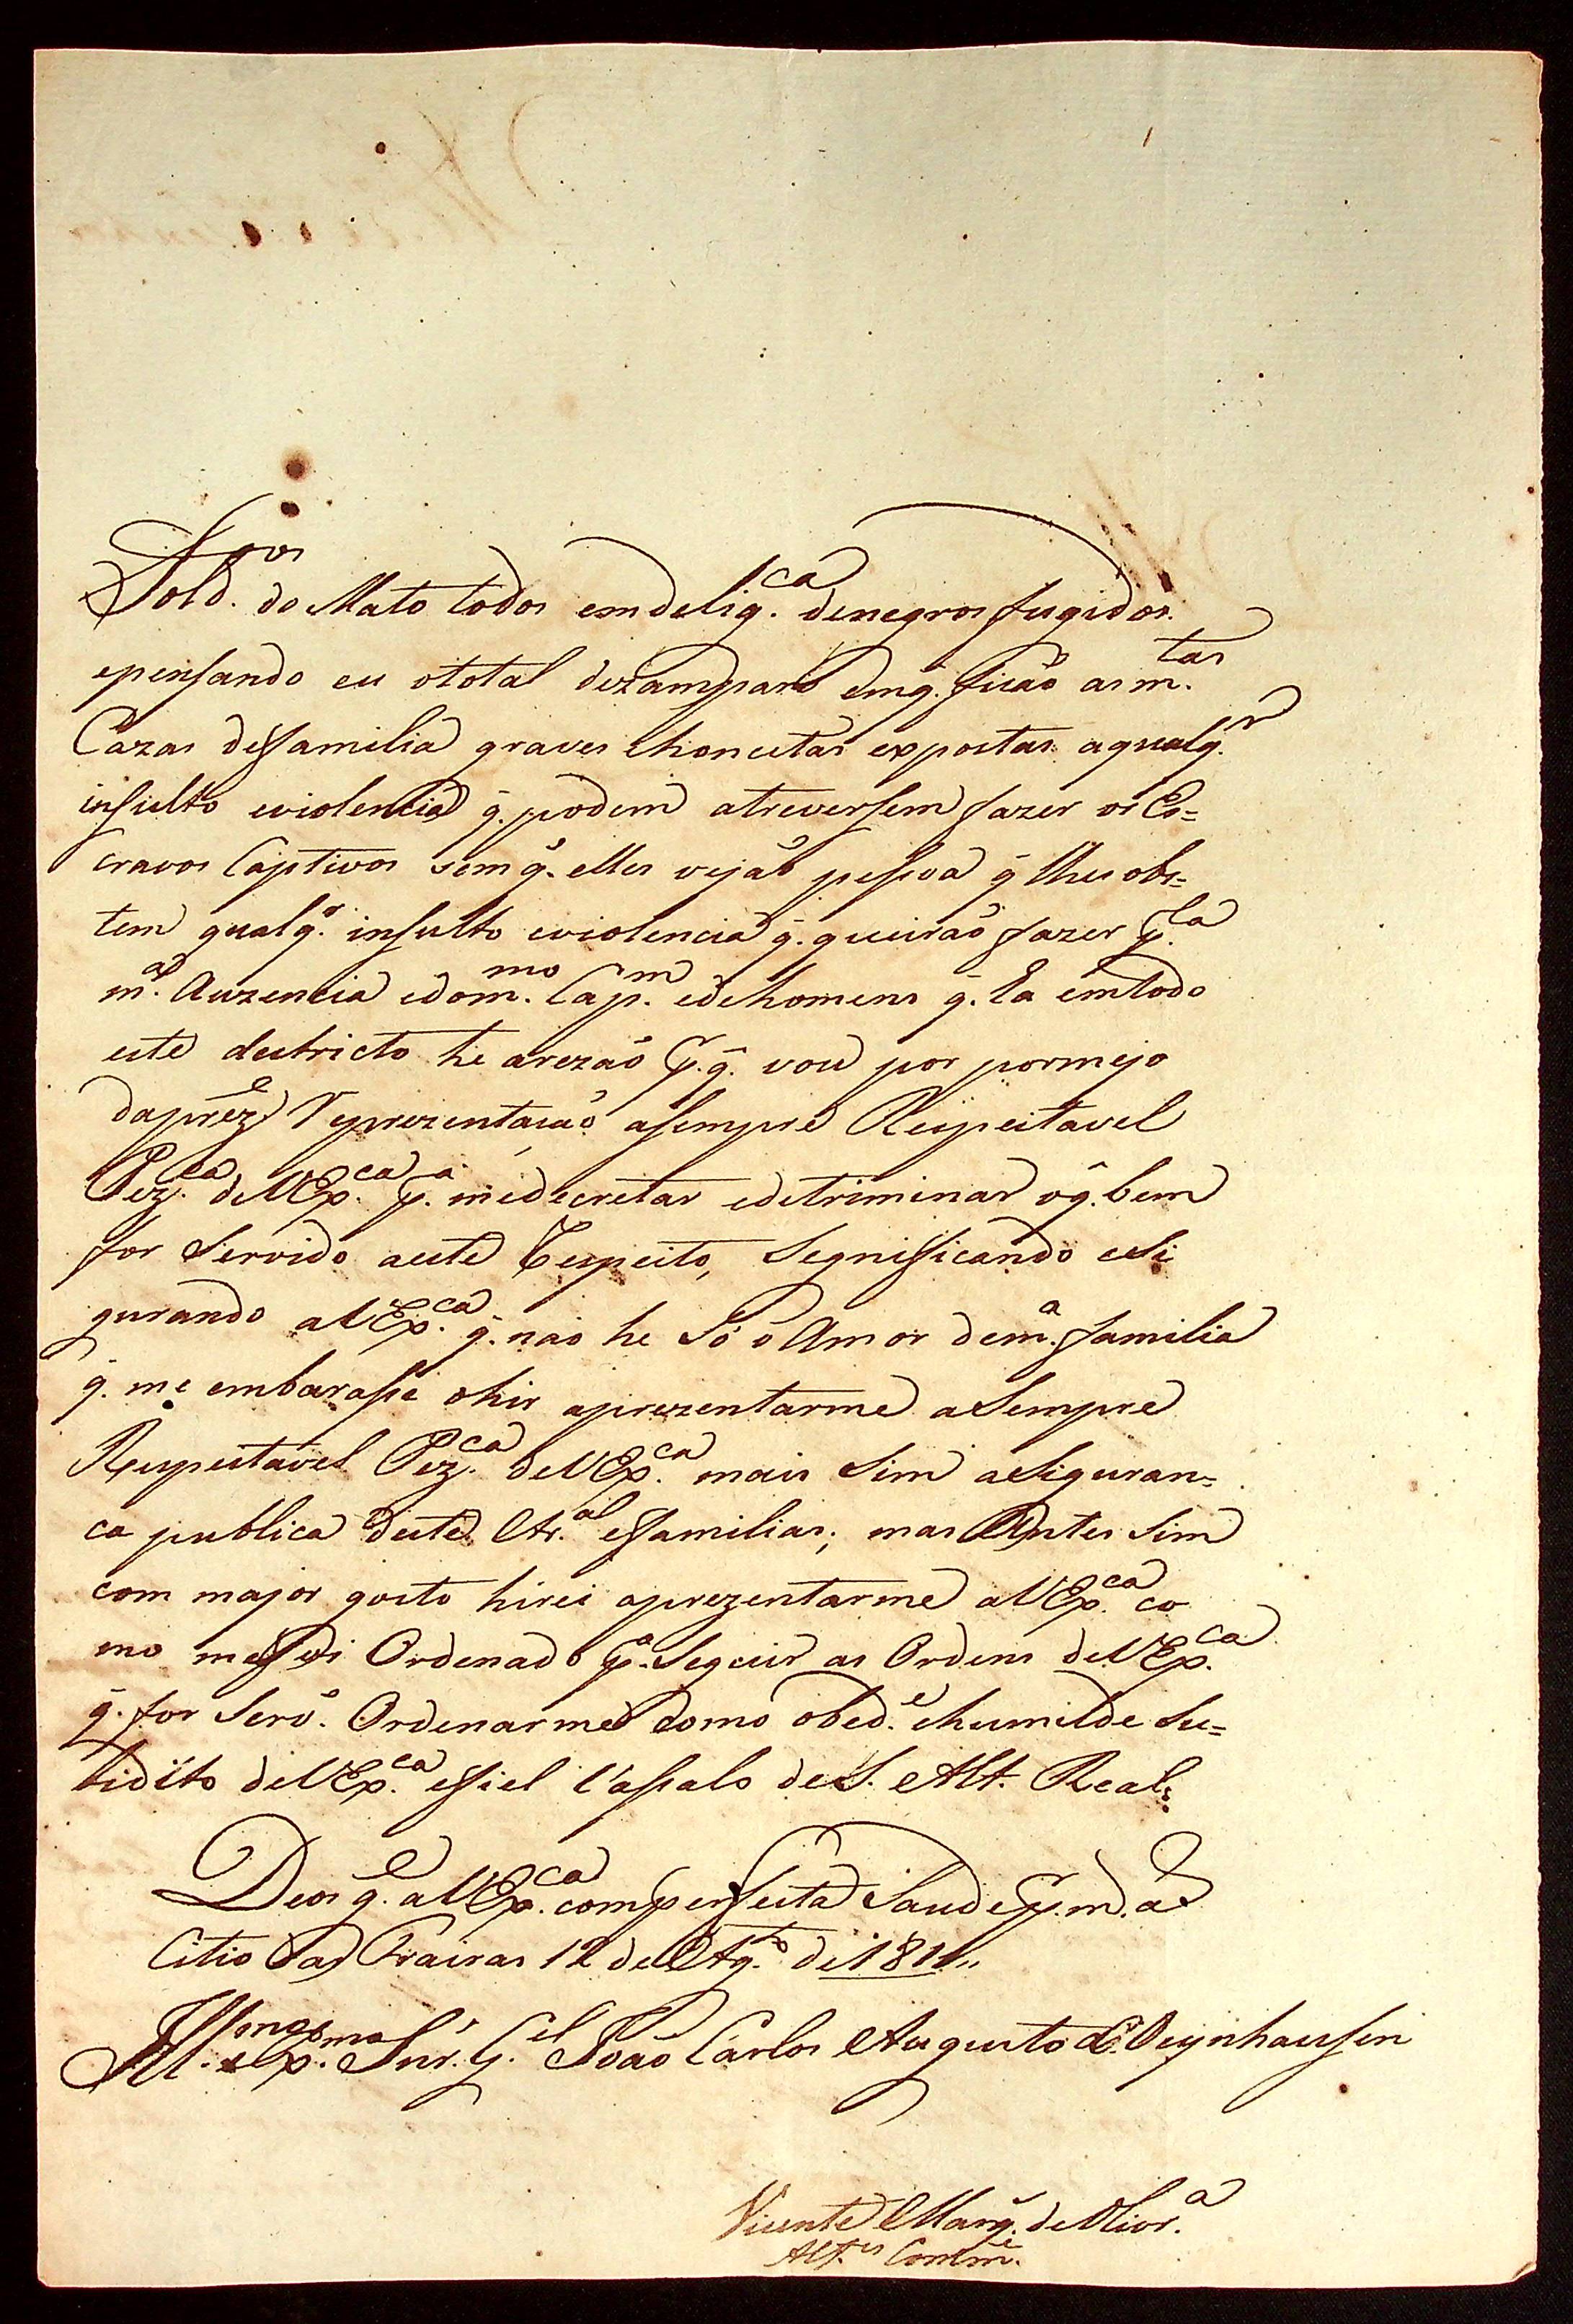 Sold.os do Mato todos em delig.ca de negros fugidos.
e pensando eu o total dezamparo em q̃. ficão as m.tas
Cazas de familia graves e honestas expostas a qualq.r
insulto e violencia q̃. podem atreversem fazer os Es=
cravos Captivos sem q̃. elles vejão pessoa q̃ lhes obs=
tem qualq.r insulto e violencia q̃. queirão fazer p.la
m.a Auzencia e do m.mo Cap.m e de homens q̃. ha em todo
este destricto he a rezão p.q̃. vou por por mejo
da prez.e Reprezentacão a sempre Respeitavel
Prez.ca de V Ex.ca p.a me decretar e detriminar o q̃. bem
for Servido a este Respeito, Segnificando e Si
gurando a V Ex.ca q̃. não he Só o Amor de m.a familia
q̃. me embarasse o hir aprezentarme a Sempre
Respeitavel Prez.ca de V Ex.ca mais Sim a Siguran=
ca publica deste Ar.al e familias; mas Antes Sim
com major gosto hirei aprezentarme a V Ex.ca co
mo me foi Ordenado p.a Seguir as Ordens de V Ex.ca
q̃. for Serv.o Ordenarme como obed.e e humilde Su=
bidito de V Ex.ca e fiel Vassalo de S. Alt. Real.
Deos g.e a V Ex.ca com perfeita Saude p.r m.s a.s
Citio das Frairas 12 de Ag.to de 1811
Ill.mo e Ex.mo Snr. G.el João Carlos Augusto de Oeynhausen
Vicente Marq̃. de Olivr.a
Alf.es Comm.e